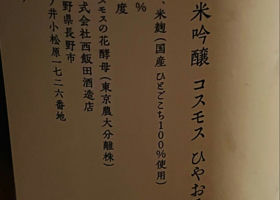 米吟醸 コスモス ひやお
、米麹(国産 ひとごこち100%使用)
%
度
スモスの花酵母(東京農大分離株)
式会社西飯田酒造店
野県長野市
ノ井小松原一七二六番地